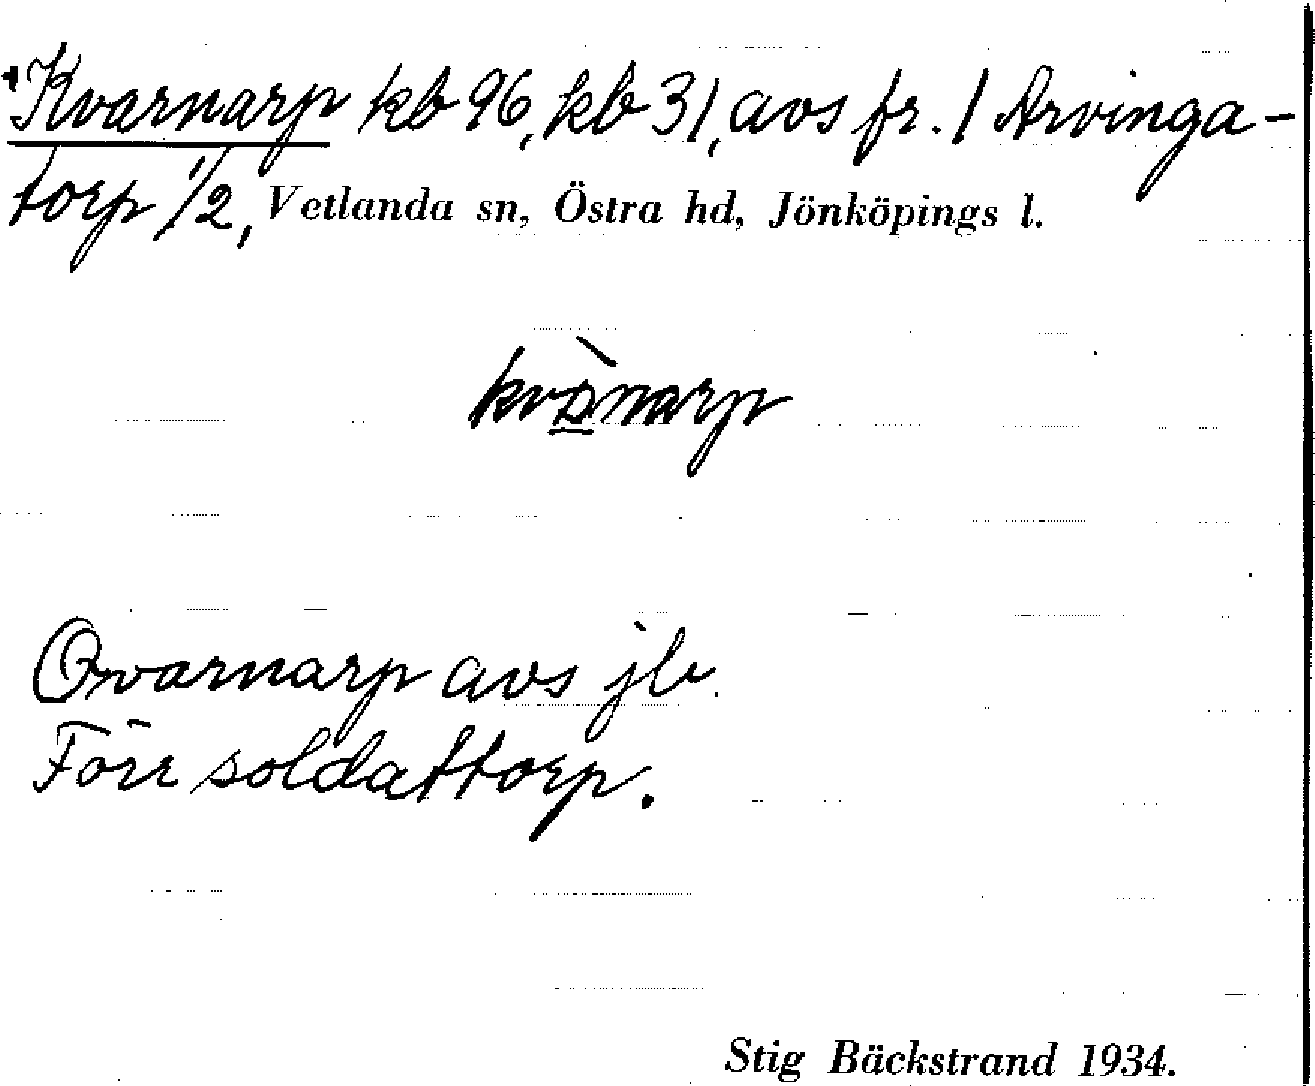 +Kvarnarp kb 96, kb 31, avs fr. 1 Arvinga-
torp 1/2, Vetlanda sn, Östra hd, Jönköpings l.
kvànarp
Qvarnarp avs jb.
Förr soldattorp.
Stig Bäckstrand 1934.